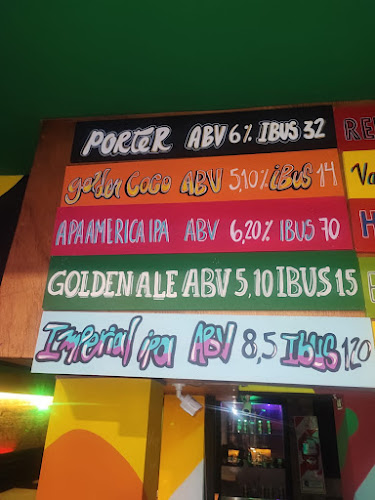 PORTER ABV 6% IBUS 32
golden COCO ABV 5,10% iBus 14
APA AMERICA IPA ABV 6,20% IBUS 70
GOLDEN ALE ABV 5,10 IBUS 15
Imperial ipa ABV 8,5 Ibus 120